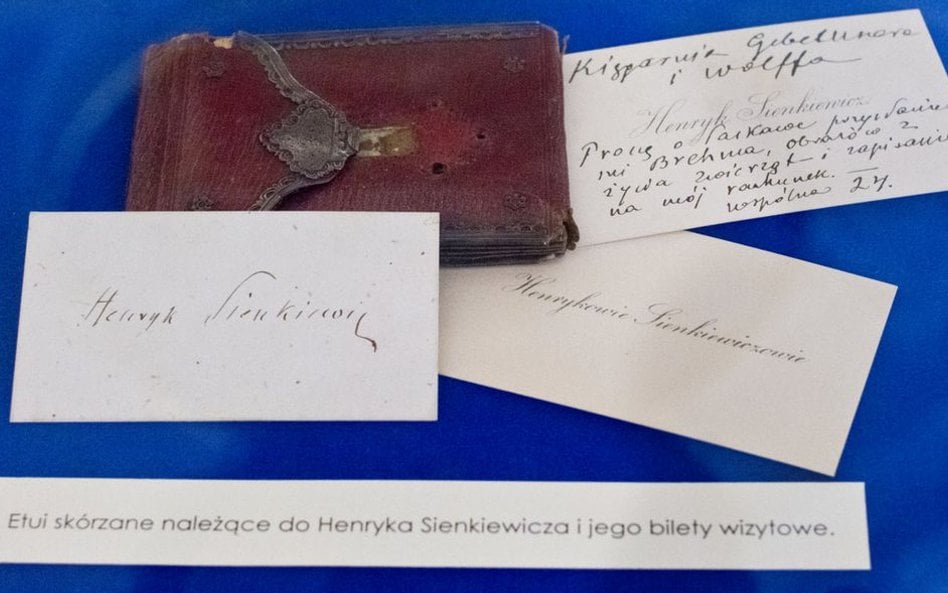 Księgarnia Gebethnera
i Wolffa
Henryk Sienkiewicz
Proszę o łaskawe przysłanie
mi Brehma, obrazów z
życia zwierząt i zapisanie
na mój rachunek.
Wspólna 24.
Henryk Sienkiewicz
Henrykowie Sienkiewiczowie
Etui skórzane należące do Henryka Sienkiewicza i jego bilety wizytowe.